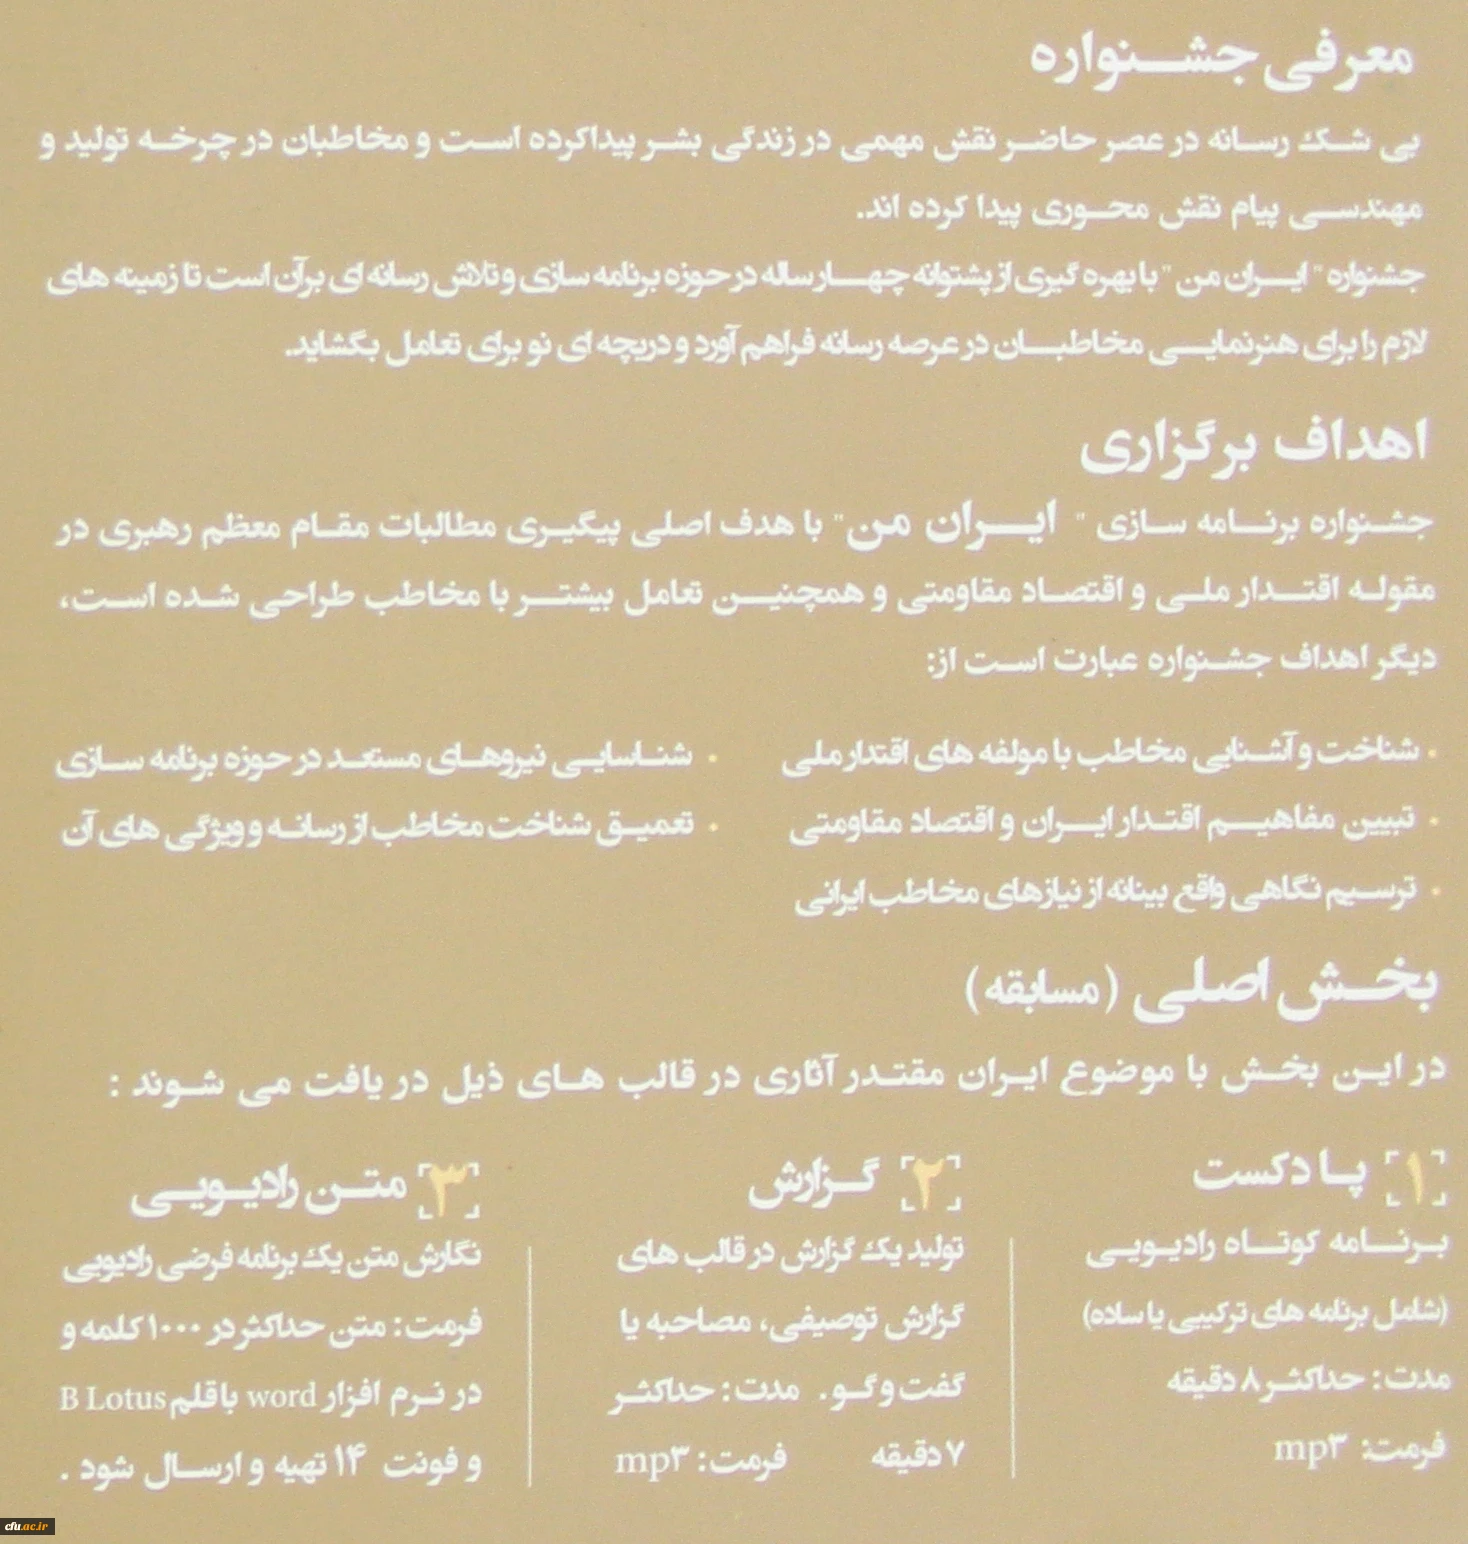 معرفی جشنواره
بی شک رسانه در عصر حاضر نقش مهمی در زندگی بشر پیدا کرده است و مخاطبان در چرخه تولید و
مهندسی پیام نقش محوری پیدا کرده اند.
جشنواره " ایران من " با بهره گیری از پشتوانه چهار ساله در حوزه برنامه سازی و تلاش رسانه ای بر آن است تا زمینه های
لازم را برای هنرنمایی مخاطبان در عرصه رسانه فراهم آورد و دریچه ای نو برای تعامل بگشاید.
اهداف برگزاری
جشنواره برنامه سازی " ایران من " با هدف اصلی پیگیری مطالبات مقام معظم رهبری در
مقوله اقتدار ملی و اقتصاد مقاومتی و همچنین تعامل بیشتر با مخاطب طراحی شده است،
دیگر اهداف جشنواره عبارت است از:
• شناخت و آشنایی مخاطب با مولفه های اقتدار ملی
• تبیین مفاهیم اقتدار ایران و اقتصاد مقاومتی
• ترسیم نگاهی واقع بینانه از نیازهای مخاطب ایرانی
• شناسایی نیروهای مستعد در حوزه برنامه سازی
• تعمیق شناخت مخاطب از رسانه و ویژگی های آن
بخش اصلی (مسابقه)
در این بخش با موضوع ایران مقتدر آثاری در قالب های ذیل در یافت می شوند :
۱ پا دکست
برنامه کوتاه رادیویی
(شامل برنامه های ترکیبی یا ساده)
مدت: حداکثر ۸ دقیقه
فرمت: mp۳
۲ گزارش
تولید یک گزارش در قالب های
گزارش توصیفی، مصاحبه یا
گفت و گو. مدت: حداکثر
۷ دقیقه فرمت: mp۳
۳ متن رادیویی
نگارش متن یک برنامه فرضی رادیویی
فرمت: متن حداکثر در ۱۰۰۰ کلمه و
در نرم افزار word با قلم B Lotus
و فونت ۱۴ تهیه و ارسال شود .
cfu.ac.ir